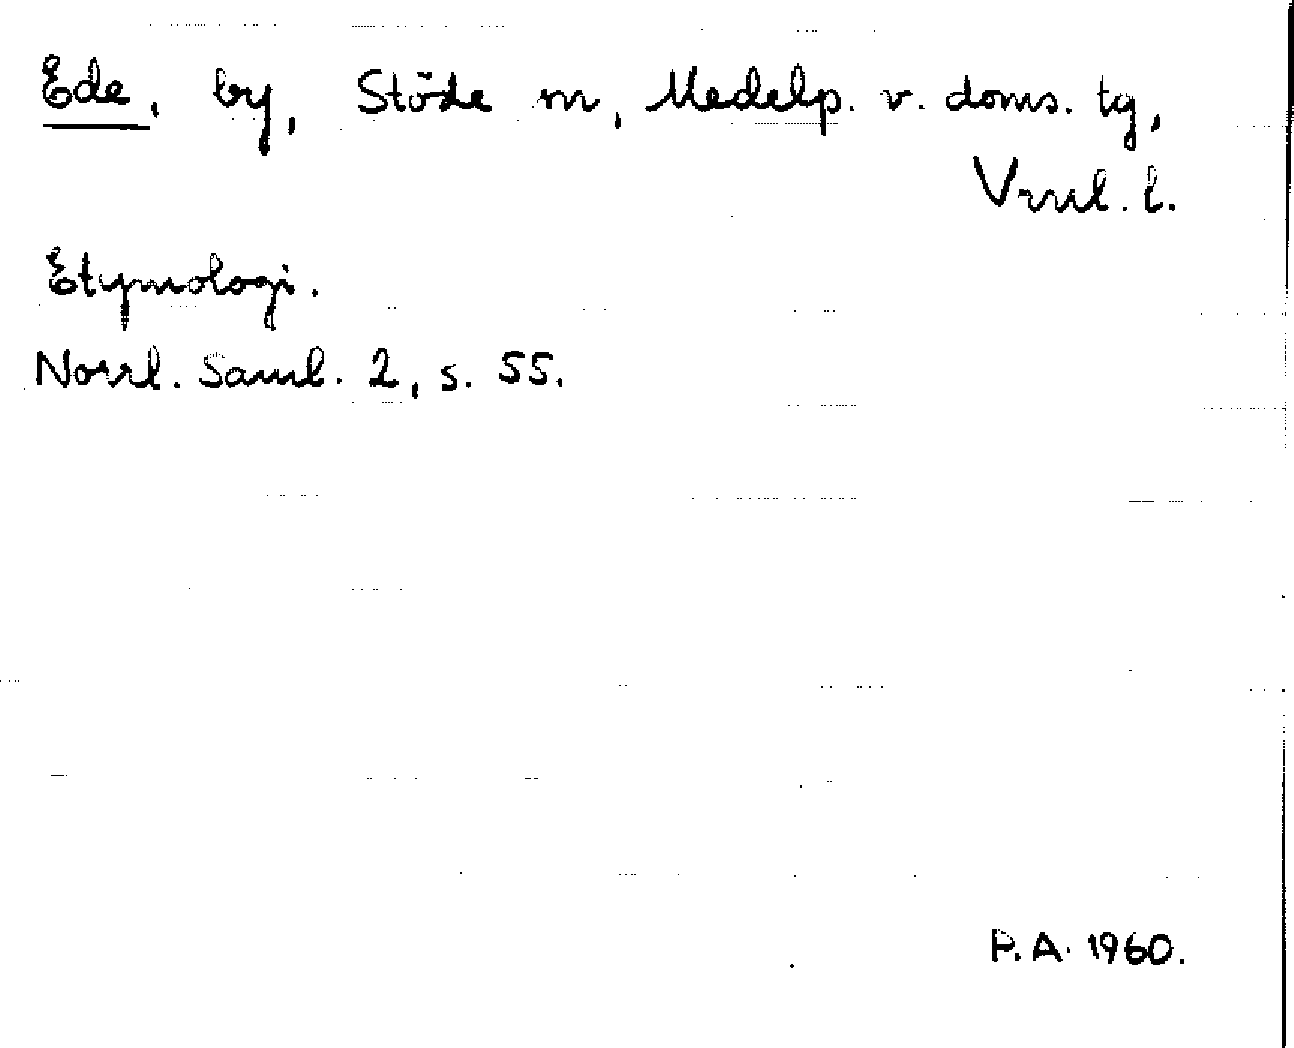 Ede, by, Stöde sn, Medelp. v. doms. tg,
Vrnl. l.
Etymologi.
Norrl. Saml. 2, s. 55.
P.A. 1960.